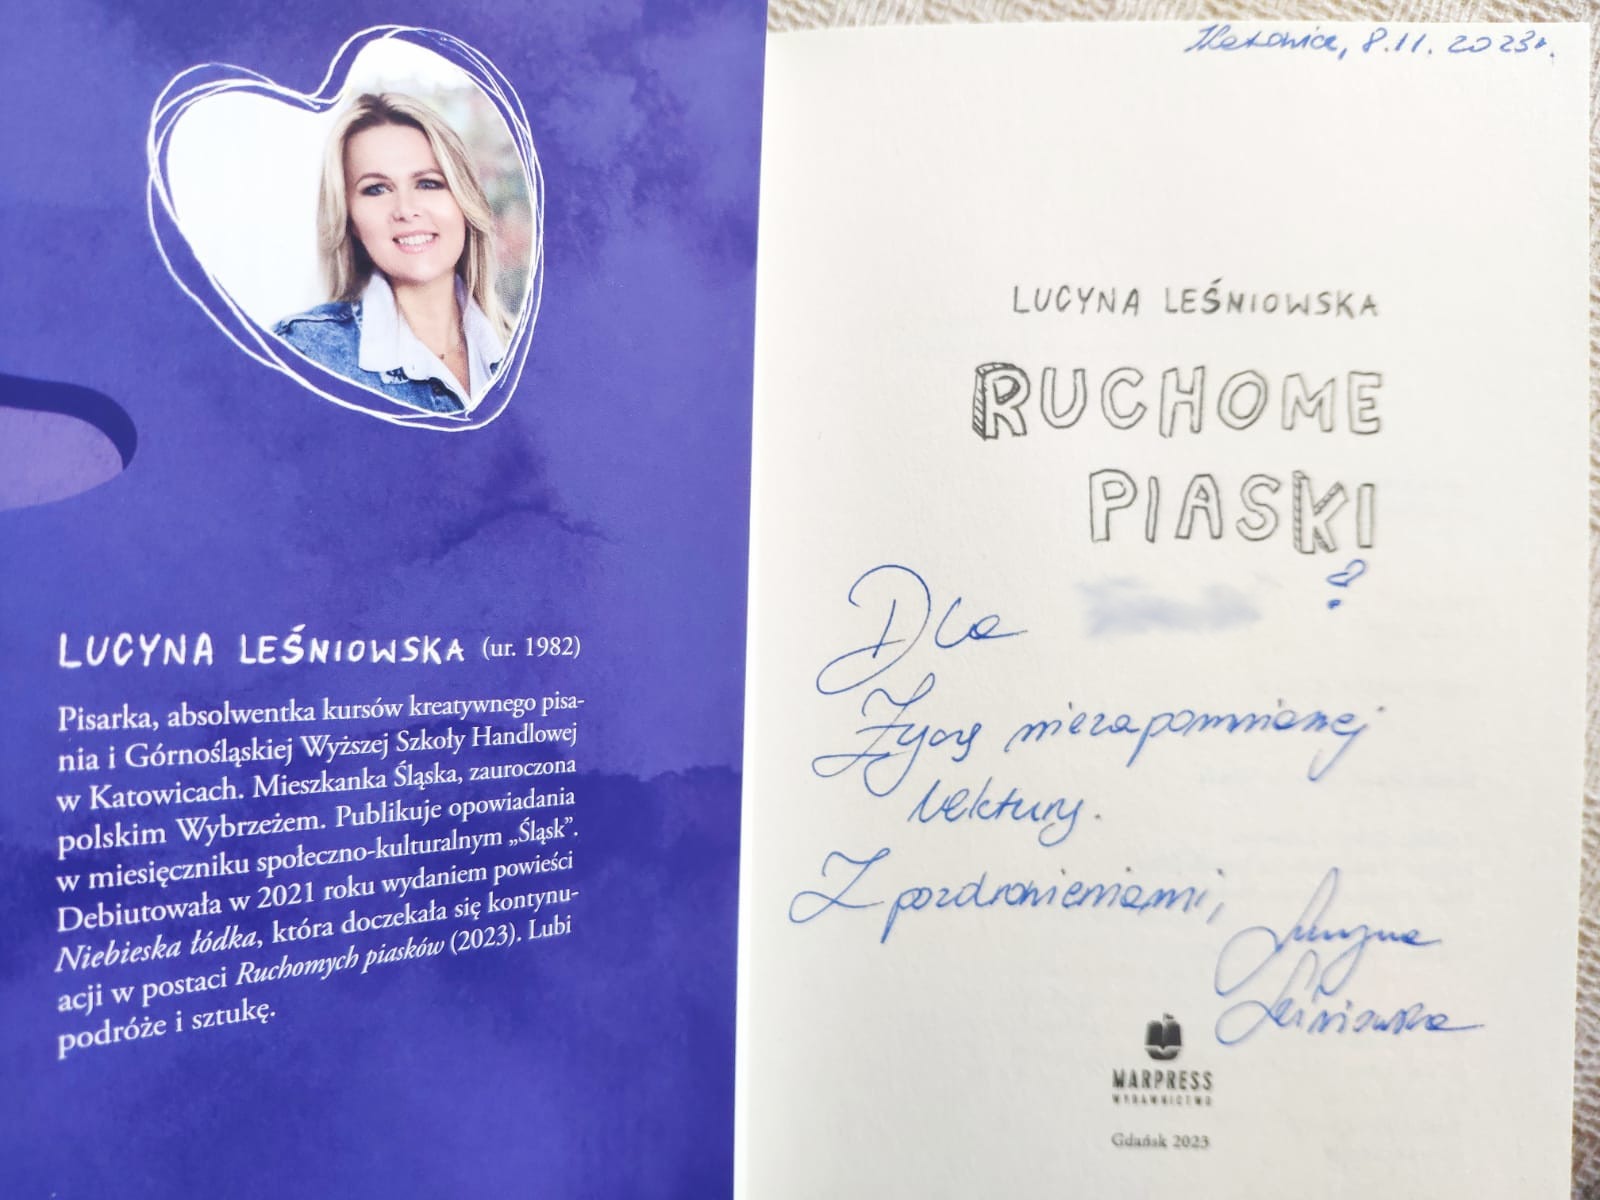 LUCYNA LEŚNIOWSKA (ur. 1982)
Pisarka, absolwentka kursów kreatywnego pisa-
nia i Górnośląskiej Wyższej Szkoły Handlowej
w Katowicach. Mieszkanka Śląska, zauroczona
polskim Wybrzeżem. Publikuje opowiadania
w miesięczniku społeczno-kulturalnym „Śląsk”.
Debiutowała w 2021 roku wydaniem powieści
Niebieska łódka, która doczekała się kontynu-
acji w postaci Ruchomych piasków (2023). Lubi
podróże i sztukę.
Katowice, 8.11.2023r.
LUCYNA LEŚNIOWSKA
RUCHOME
PIASKI
Dla
Życzę niezapomnianej
lektury.
Z pozdrowieniami,
Lucyna
Leśniowska
MARPRESS
WYDAWNICTWO
Gdańsk 2023